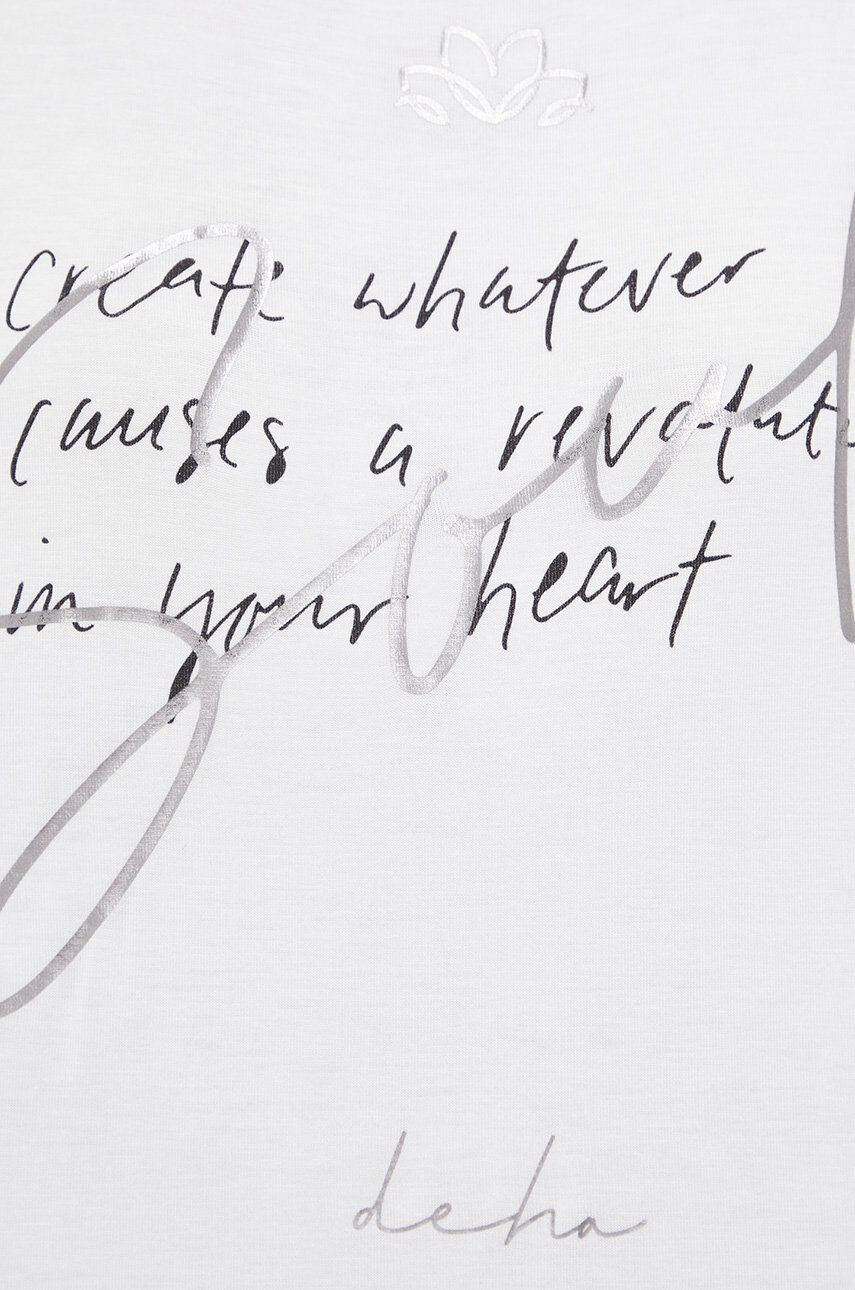 create whatever
causes a revolut
in your heart
Soul
deha